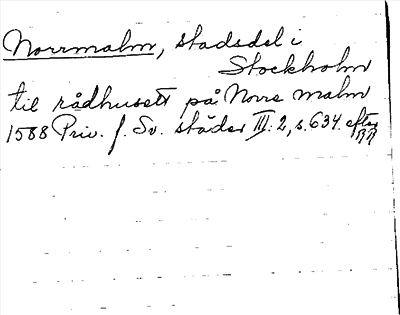 Norrmalm, stadsdel i
Stockholm
til rådhusett på Norre malm
1588 Priv. f. Sv. städer III: 2, s. 634. efter
RR